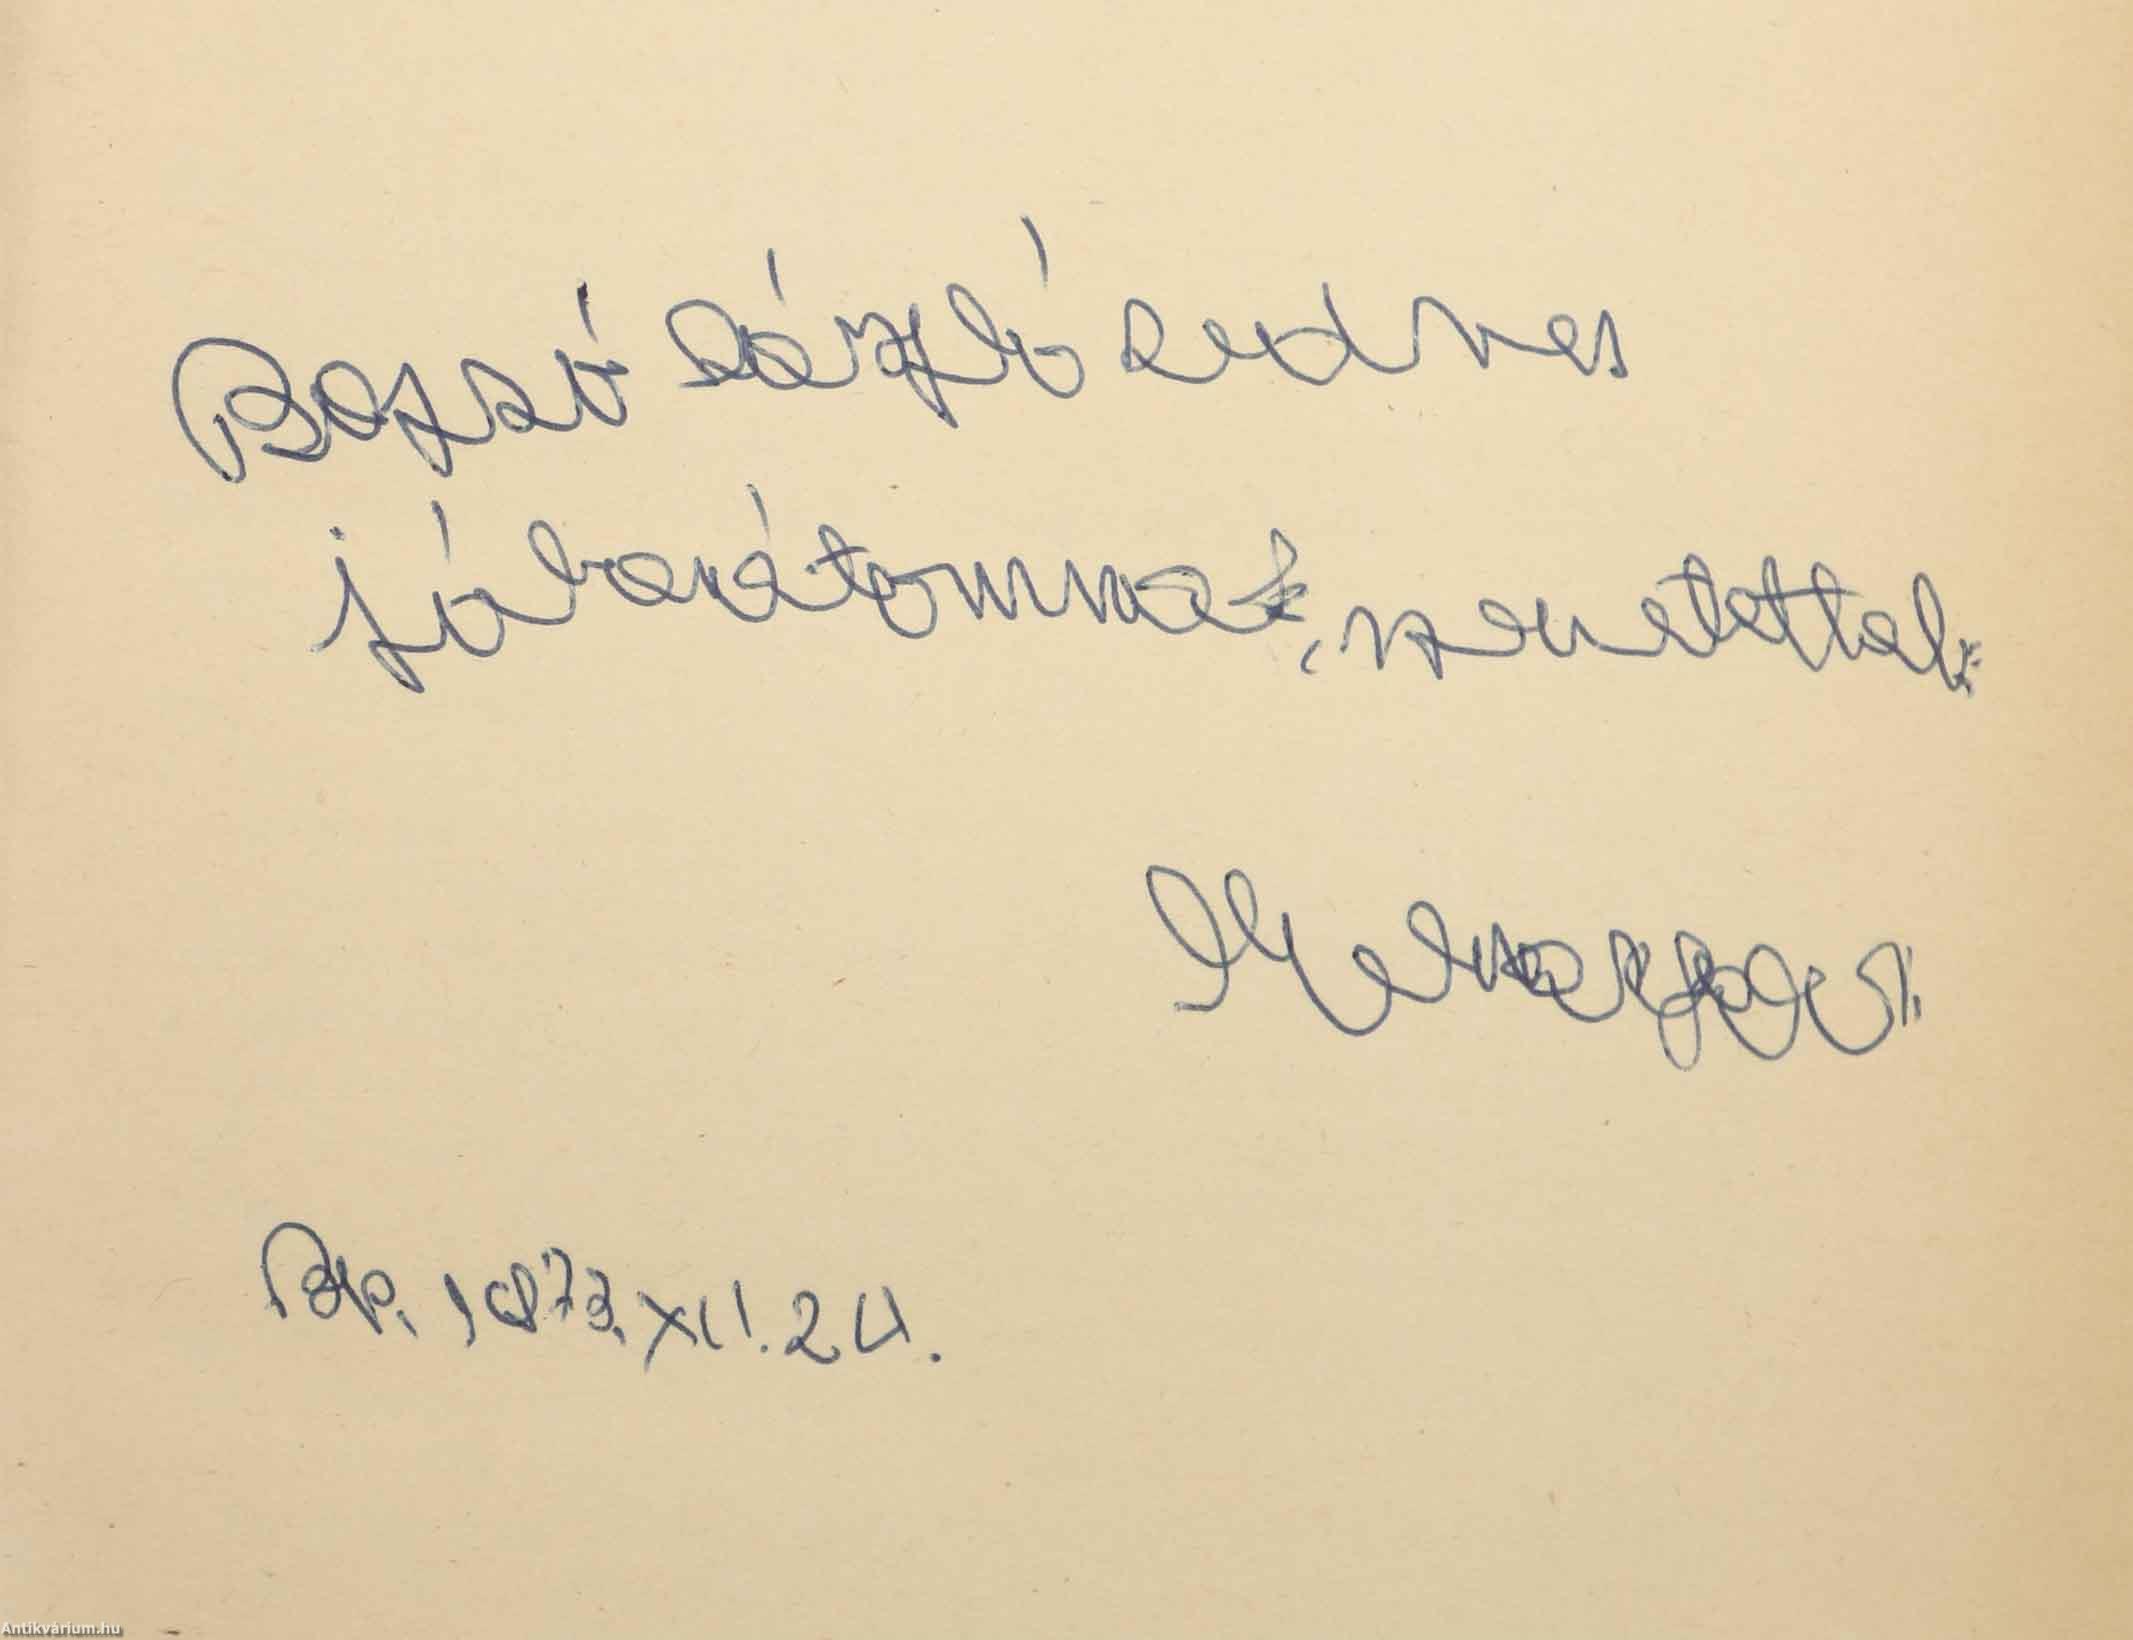 László kedves
jóbarátomnak, szeretettel:
Bp. 1973. XII. 24.
Antikvárium.hu